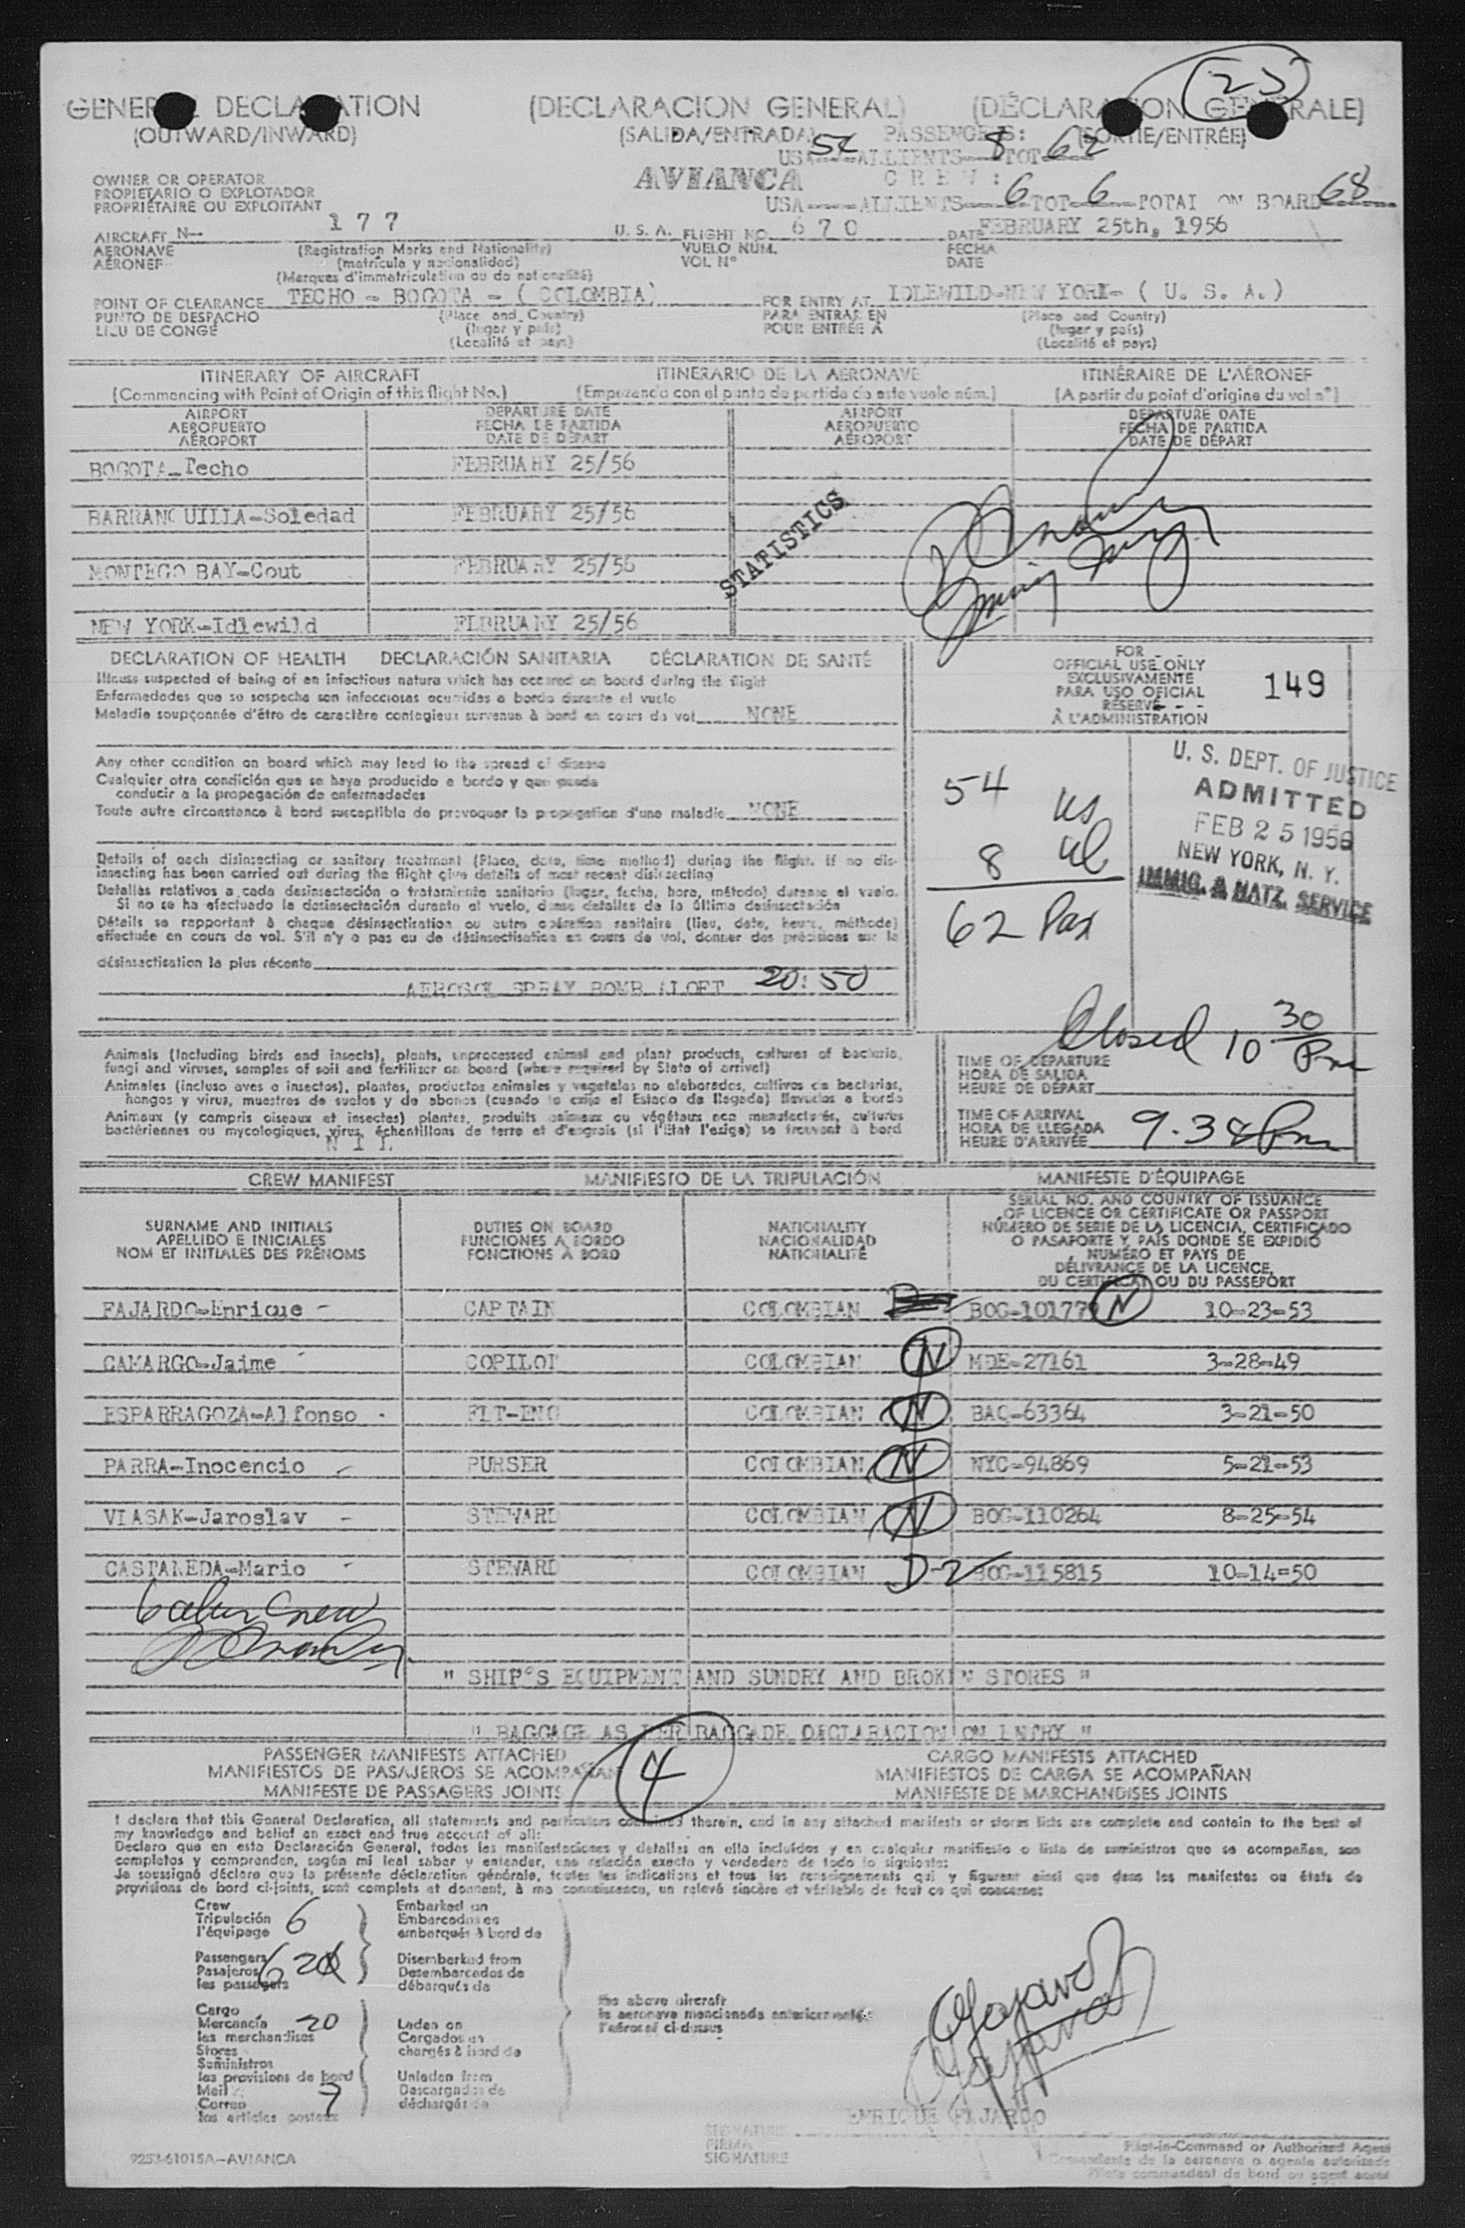 (23)
GENERAL DECLARATION (DECLARACION GENERAL) (DÉCLARATION GENERALE)
(OUTWARD/INWARD) (SALIDA/ENTRADA) PASSENGERS: (SORTIE/ENTRÉE)
USA 54 ALLIENTS 8 TOT 62
OWNER OR OPERATOR
PROPIETARIO O EXPLOTADOR
PROPRIÉTAIRE OU EXPLOITANT
AVIANCA CREW:
USA----ALLIENTS 6 TOT 6 TOTAL ON BOARD 68
AIRCRAFT N-- 177 U. S. A. FLIGHT NO. 670 DATE FEBRUARY 25th, 1956
AERONAVE (Registration Marks and Nationality) VUELO NUM. FECHA
AÉRONEF (matrícula y nacionalidad) VOL N° DATE
(Marques d'immatriculation ou de nationalité)
POINT OF CLEARANCE TECHO - BOGOTA - ( COLOMBIA) FOR ENTRY AT IDLEWILD-NEW YORK- ( U. S. A.)
PUNTO DE DESPACHO (Place and Country) PARA ENTRAR EN (Place and Country)
LIEU DE CONGÉ (lugar y país) POUR ENTRÉE A (lugar y país)
(Localité et pays) (Localité et pays)
ITINERARY OF AIRCRAFT ITINERARIO DE LA AERONAVE ITINÉRAIRE DE L'AÉRONEF
(Commencing with Point of Origin of this flight No.) (Empezando con el punto de partida de este vuelo núm.) (A partir du point d'origine du vol n°)
AIRPORT DEPARTURE DATE AIRPORT DEPARTURE DATE
AEROPUERTO FECHA DE PARTIDA AEROPUERTO FECHA DE PARTIDA
AÉROPORT DATE DE DÉPART AÉROPORT DATE DE DÉPART
BOGOTA-Techo FEBRUARY 25/56
BARRANQUILLA-Soledad FEBRUARY 25/56
STATISTICS
MONTEGO BAY-Cout FEBRUARY 25/56
NEW YORK-Idlewild FEBRUARY 25/56
DECLARATION OF HEALTH DECLARACIÓN SANITARIA DÉCLARATION DE SANTÉ
Illness suspected of being of an infectious nature which has occured on board during the flight
Enfermedades que se sospecha son infecciosas ocurridas a bordo durante el vuelo
Maladie soupçonnée d'être de caractère contagieux survenue à bord en cours de vol NONE
FOR
OFFICIAL USE ONLY
EXCLUSIVAMENTE
PARA USO OFICIAL
RÉSERVÉ
À L'ADMINISTRATION
149
Any other condition on board which may lead to the spread of disease
Cualquier otra condición que se haya producido a bordo y que pueda
conducir a la propagación de enfermedades
Toute autre circonstance à bord susceptible de provoquer la propagation d'une maladie NONE
54 US
8 al
62 Pax
U. S. DEPT. OF JUSTICE
ADMITTED
FEB 25 1956
NEW YORK, N. Y.
IMMIG. & NATZ. SERVICE
Details of each disinsecting or sanitary treatment (Place, date, time method) during the flight. If no dis-
insecting has been carried out during the flight give details of most recent disinsecting
Detalles relativos a cada desinsectación o tratamiento sanitario (lugar, fecha, hora, método) durante el vuelo.
Si no se ha efectuado la desinsectación durante el vuelo, dense detalles de la última desinsectación
Détails se rapportant à chaque désinsectisation ou autre opération sanitaire (lieu, date, heure, méthode)
effectuée en cours de vol. S'il n'y a pas eu de désinsectisation en cours de vol, donner des précisions sur la
désinsectisation la plus récente
AEROSOL SPRAY BOMB ALOFT 20:50
Closed 10 30 Pm
Animals (Including birds and insects), plants, unprocessed animal and plant products, cultures of bacteria,
fungi and viruses, samples of soil and fertilizer on board (where required by State of arrival)
Animales (incluso aves o insectos), plantas, productos animales y vegetales no elaborados, cultivos de bacterias,
hongos y virus, muestras de suelos y de abonos (cuando lo exija el Estado de llegada) llevados a bordo
Animaux (y compris oiseaux et insectes) plantes, produits animaux ou végétaux non manufacturés, cultures
bactériennes ou mycologiques, virus, échantillons de terre et d'engrais (si l'État l'exige) se trouvant à bord
NIL
TIME OF DEPARTURE
HORA DE SALIDA
HEURE DE DÉPART
TIME OF ARRIVAL
HORA DE LLEGADA
HEURE D'ARRIVÉE 9.38 Pm
CREW MANIFEST MANIFIESTO DE LA TRIPULACIÓN MANIFESTE D'ÉQUIPAGE
SURNAME AND INITIALS
APELLIDO E INICIALES
NOM ET INITIALES DES PRÉNOMS
DUTIES ON BOARD
FUNCIONES A BORDO
FONCTIONS À BORD
NATIONALITY
NACIONALIDAD
NATIONALITÉ
SERIAL NO. AND COUNTRY OF ISSUANCE
OF LICENCE OR CERTIFICATE OR PASSPORT
NÚMERO DE SERIE DE LA LICENCIA, CERTIFICADO
O PASAPORTE Y PAÍS DONDE SE EXPIDIÓ
NUMÉRO ET PAYS DE
DÉLIVRANCE DE LA LICENCE,
DU CERTIFICAT OU DU PASSEPORT
FAJARDO-Enrique - CAPTAIN COLOMBIAN BOG-10177 N 10-23-53
CAMARGO-Jaime COPILOT COLOMBIAN N MDE-27161 3-28-49
ESPARRAGOZA-Alfonso FLT-ENG COLOMBIAN N BAQ-63364 3-21-50
PARRA-Inocencio PURSER COLOMBIAN N NYC-94869 5-21-53
VLASAK-Jaroslav - STEWARD COLOMBIAN N BOG-110264 8-25-54
CASTANEDA-Mario STEWARD COLOMBIAN D-2 BOG-115815 10-14-50
" SHIP'S EQUIPMENT AND SUNDRY AND BROKEN STORES "
" BAGGAGE AS PER BAGGADE DECLARACION ON ENTRY "
PASSENGER MANIFESTS ATTACHED CARGO MANIFESTS ATTACHED
MANIFIESTOS DE PASAJEROS SE ACOMPAÑAN 4 MANIFIESTOS DE CARGA SE ACOMPAÑAN
MANIFESTE DE PASSAGERS JOINTS MANIFESTE DE MARCHANDISES JOINTS
I declare that this General Declaration, all statements and particulars contained therein, and in any attached manifests or stores lists are complete and contain to the best of
my knowledge and belief an exact and true account of all:
Declaro que en esta Declaración General, todas las manifestaciones y detalles en ella incluidos y en cualquier manifiesto o lista de suministros que se acompañan, son
completos y comprenden, según mi leal saber y entender, una relación exacta y verdadera de todo lo siguiente:
Je soussigné déclare que la présente déclaration générale, toutes les indications et tous les renseignements qui y figurent ainsi que dans les manifestes ou états de
provisions de bord ci-joints, sont complets et donnent, à ma connaissance, un relevé sincère et véritable de tout ce qui concerne:
Crew
Tripulación 6
l'équipage
Embarked on
Embarcados en
embarqués à bord de
Passengers
Pasajeros 62
les passagers
Disembarked from
Desembarcados de
débarqués de
Cargo
Mercancía 20
les marchandises
Stores
Suministros
les provisions de bord
Mail
Correo 7
les articles postaux
Laden on
Cargados en
chargés à bord de
Unladen from
Descargados de
déchargés de
the above aircraft
la aeronave mencionada anteriormente
l'aéronef ci-dessus
ENRIQUE FAJARDO
SIGNATURE
FIRMA
SIGNATURE
Pilot-in-Command or Authorized Agent
Comandante de la aeronave o agente autorizado
Pilote commandant de bord ou agent autorisé
9253-61015A-AVIANCA